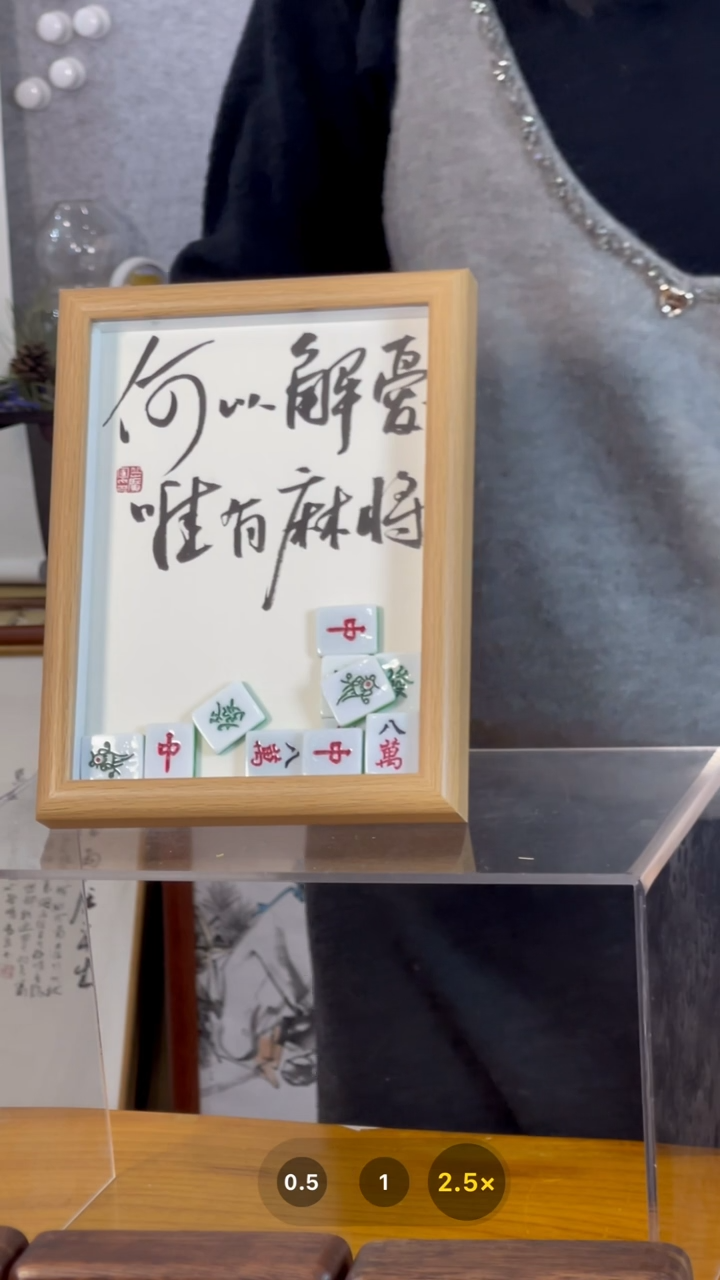 何以解憂
唯有麻將
中
發
發
中
八萬
中
八萬
0.5
1
2.5×